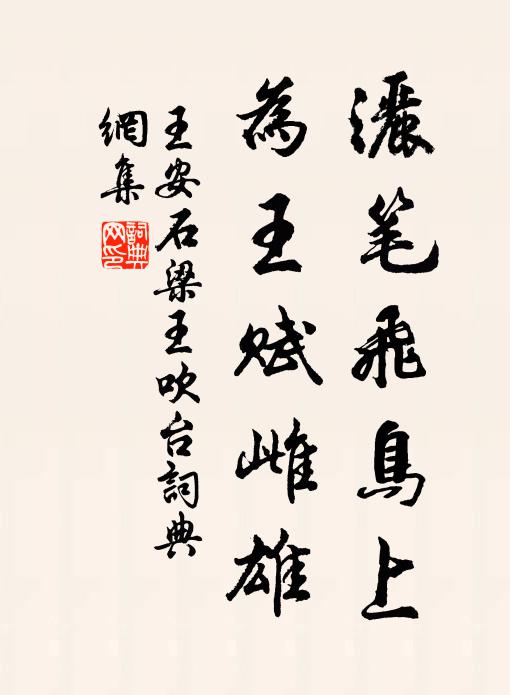 灑笔飛鳥上
為王賦雌雄
王安石梁王吹台詞典
網集
詞典
网印